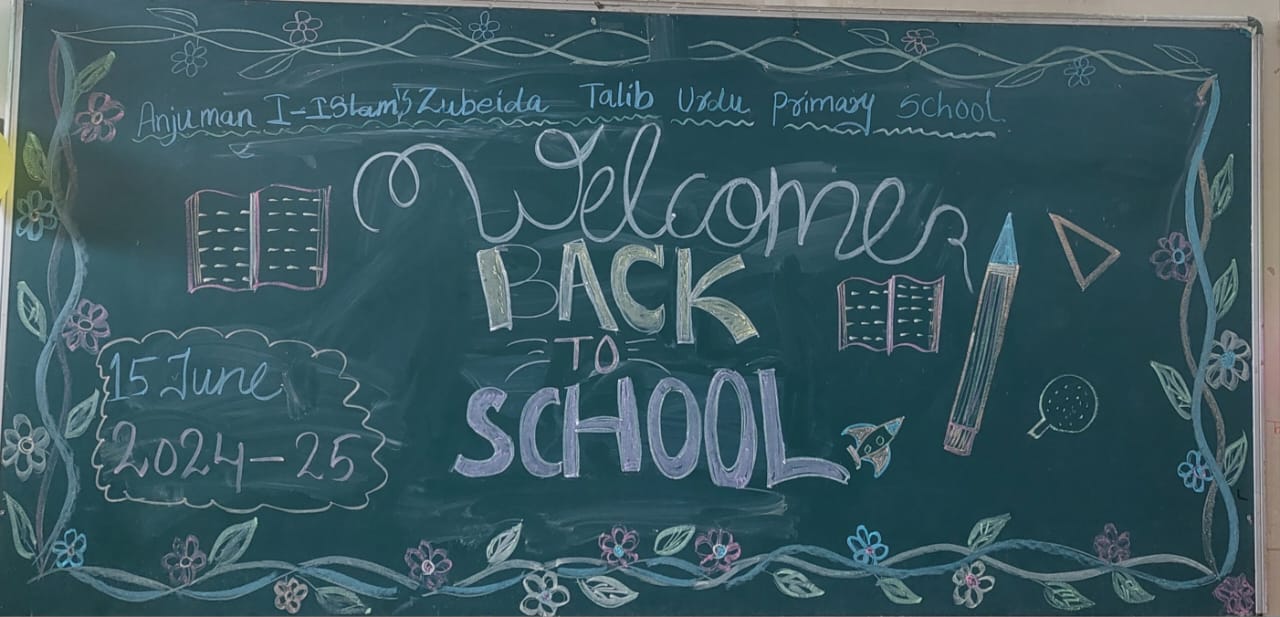 Anjuman I-Islam's Zubeida Talib Urdu Primary School
Welcome
BACK
TO
SCHOOL
15 June
2024-25